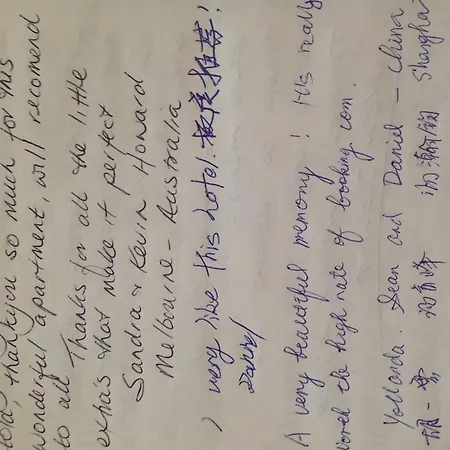 thankyou so much for this
wonderful apartment, will recomend
to all Thanks for all the little
extra's that make it perfect
Sandra & Kevin Howard
Melbourne - Australia
I very like this hotel. 极度推荐!
A very beautiful memory ! It's really
the high rate of booking com.
Yollanda. Sean and Daniel - China
Shanghai
胡一